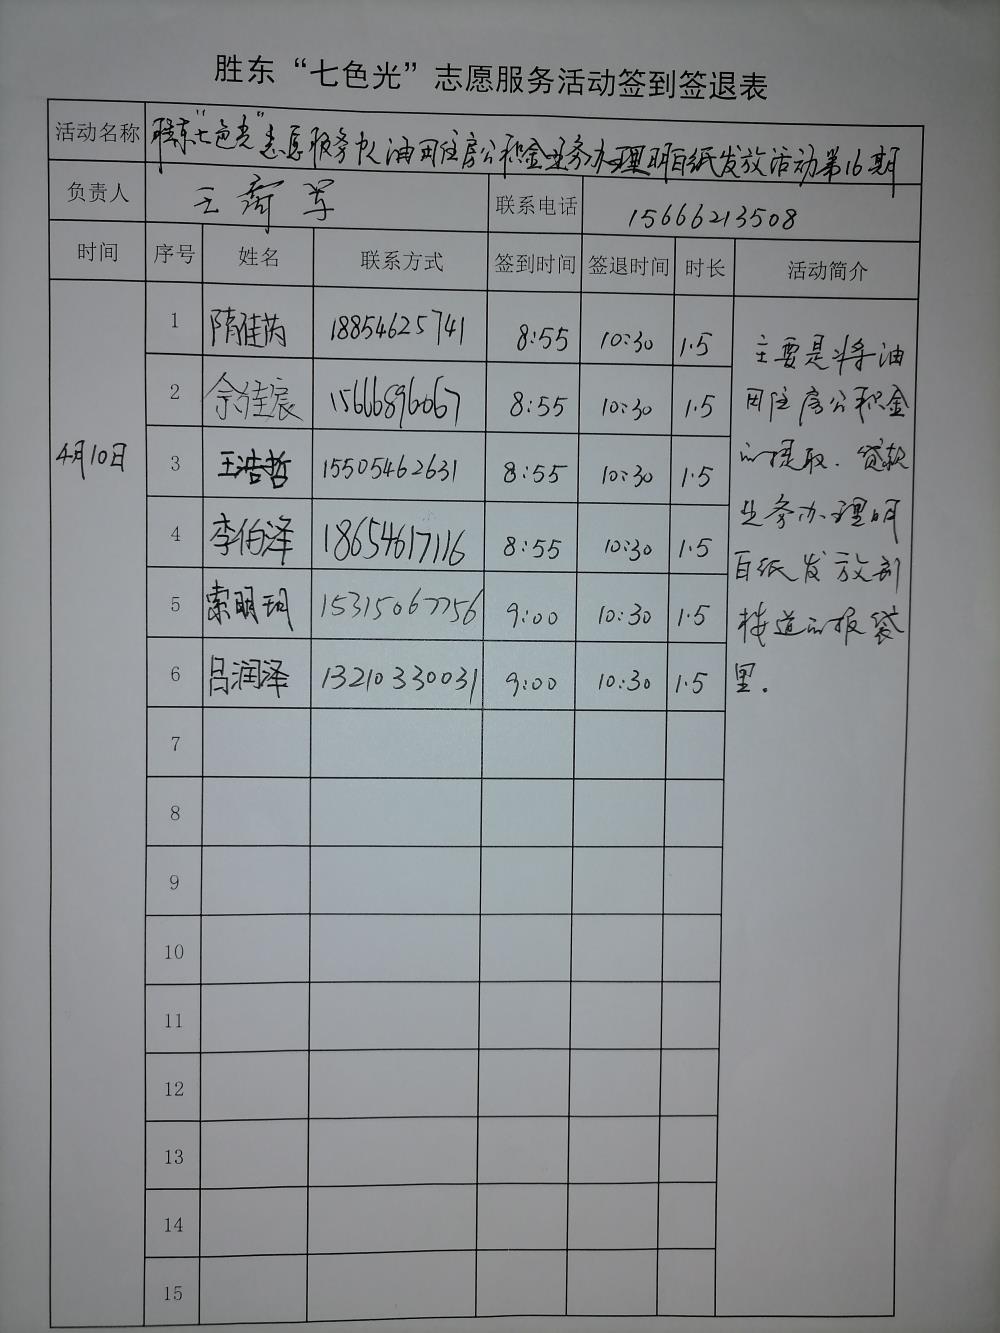 胜东“七色光”志愿服务活动签到签退表
活动名称 胜东“七色光”志愿服务队油田住房公积金业务办理明白纸发放活动第16期
负责人 王 军 联系电话 15666213508
时间 序号 姓名 联系方式 签到时间 签退时间 时长 活动简介
4月10日
1 隋佳芮 18854625741 8:55 10:30 1.5
2 佘佳宸 15666896067 8:55 10:30 1.5
3 王浩哲 15505462631 8:55 10:30 1.5
4 李伯泽 18654617116 8:55 10:30 1.5
5 索明珂 15315067756 9:00 10:30 1.5
6 吕润泽 13210330031 9:00 10:30 1.5
7
8
9
10
11
12
13
14
15
主要是将油
田住房公积金
的提取、贷款
业务办理明
白纸发放到
楼道的报袋
里。